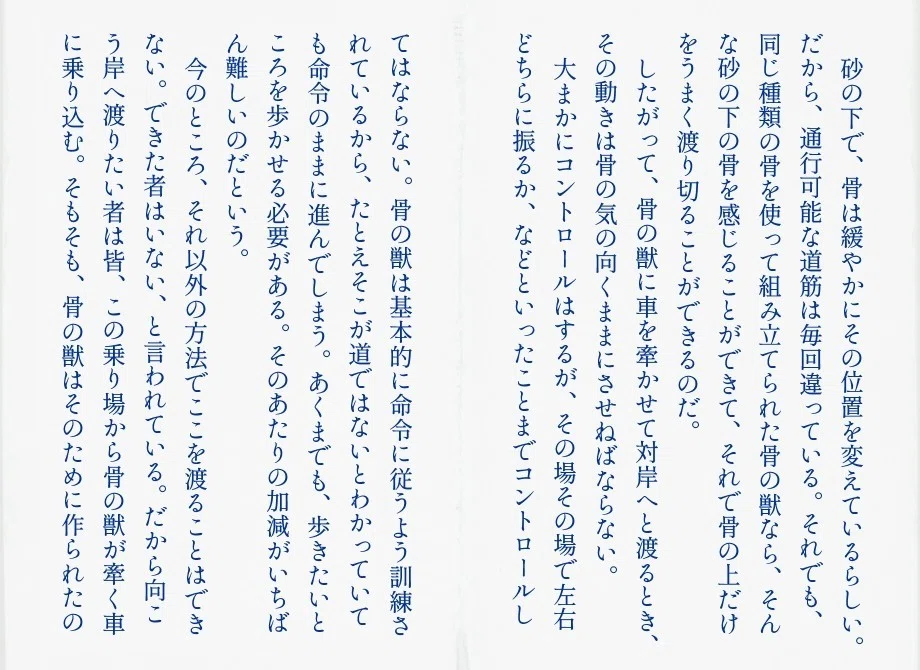 砂の下で、骨は緩やかにその位置を変えているらしい。
だから、通行可能な道筋は毎回違っている。それでも、
同じ種類の骨を使って組み立てられた骨の獣なら、そん
な砂の下の骨を感じることができて、それで骨の上だけ
をうまく渡り切ることができるのだ。
したがって、骨の獣に車を牽かせて対岸へと渡るとき、
その動きは骨の気の向くままにさせねばならない。
大まかにコントロールはするが、その場その場で左右
どちらに振るか、などといったことまでコントロールし
てはならない。骨の獣は基本的に命令に従うよう訓練さ
れているから、たとえそこが道ではないとわかっていて
も命令のままに進んでしまう。あくまでも、歩きたいと
ころを歩かせる必要がある。そのあたりの加減がいちば
ん難しいのだという。
今のところ、それ以外の方法でここを渡ることはでき
ない。できた者はいない、と言われている。だから向こ
う岸へ渡りたい者は皆、この乗り場から骨の獣が牽く車
に乗り込む。そもそも、骨の獣はそのために作られたの